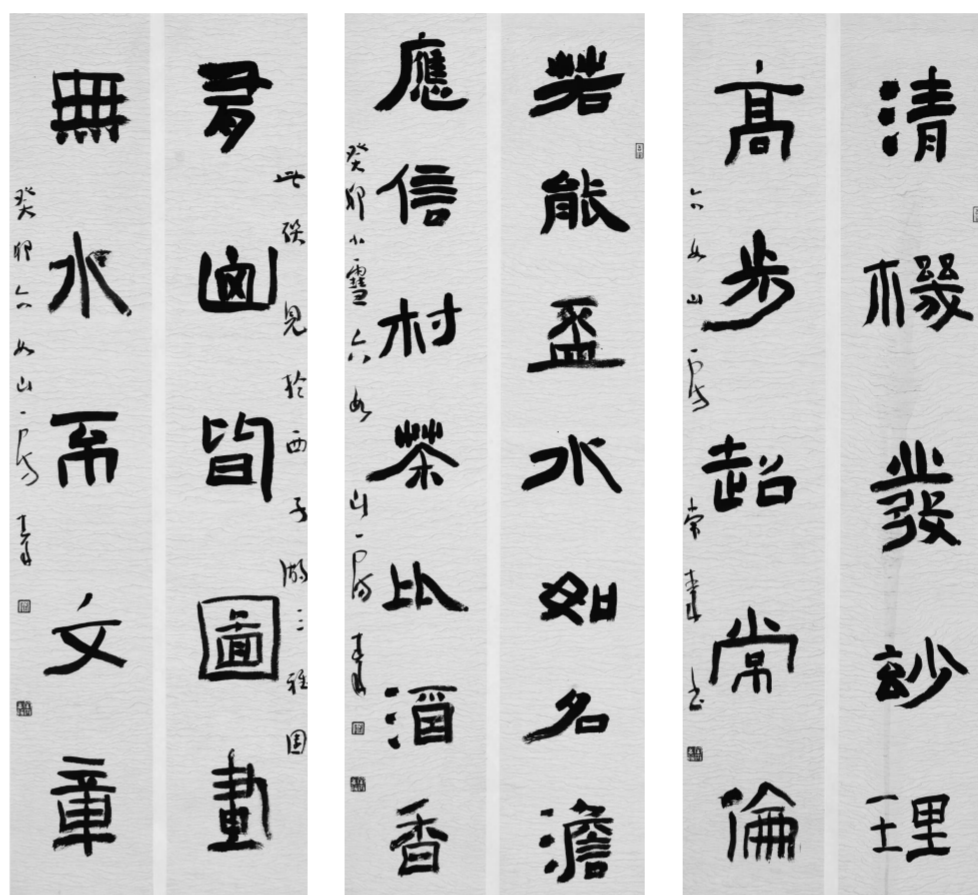 清機發玅理
高步超常倫
六如山一房
若能盃水如名澹
應信村茶比酒香
癸卯小雪六如山一房
有山皆圖畫
此聯見於西子湖三雅園
無水不文章
癸卯六如山一房